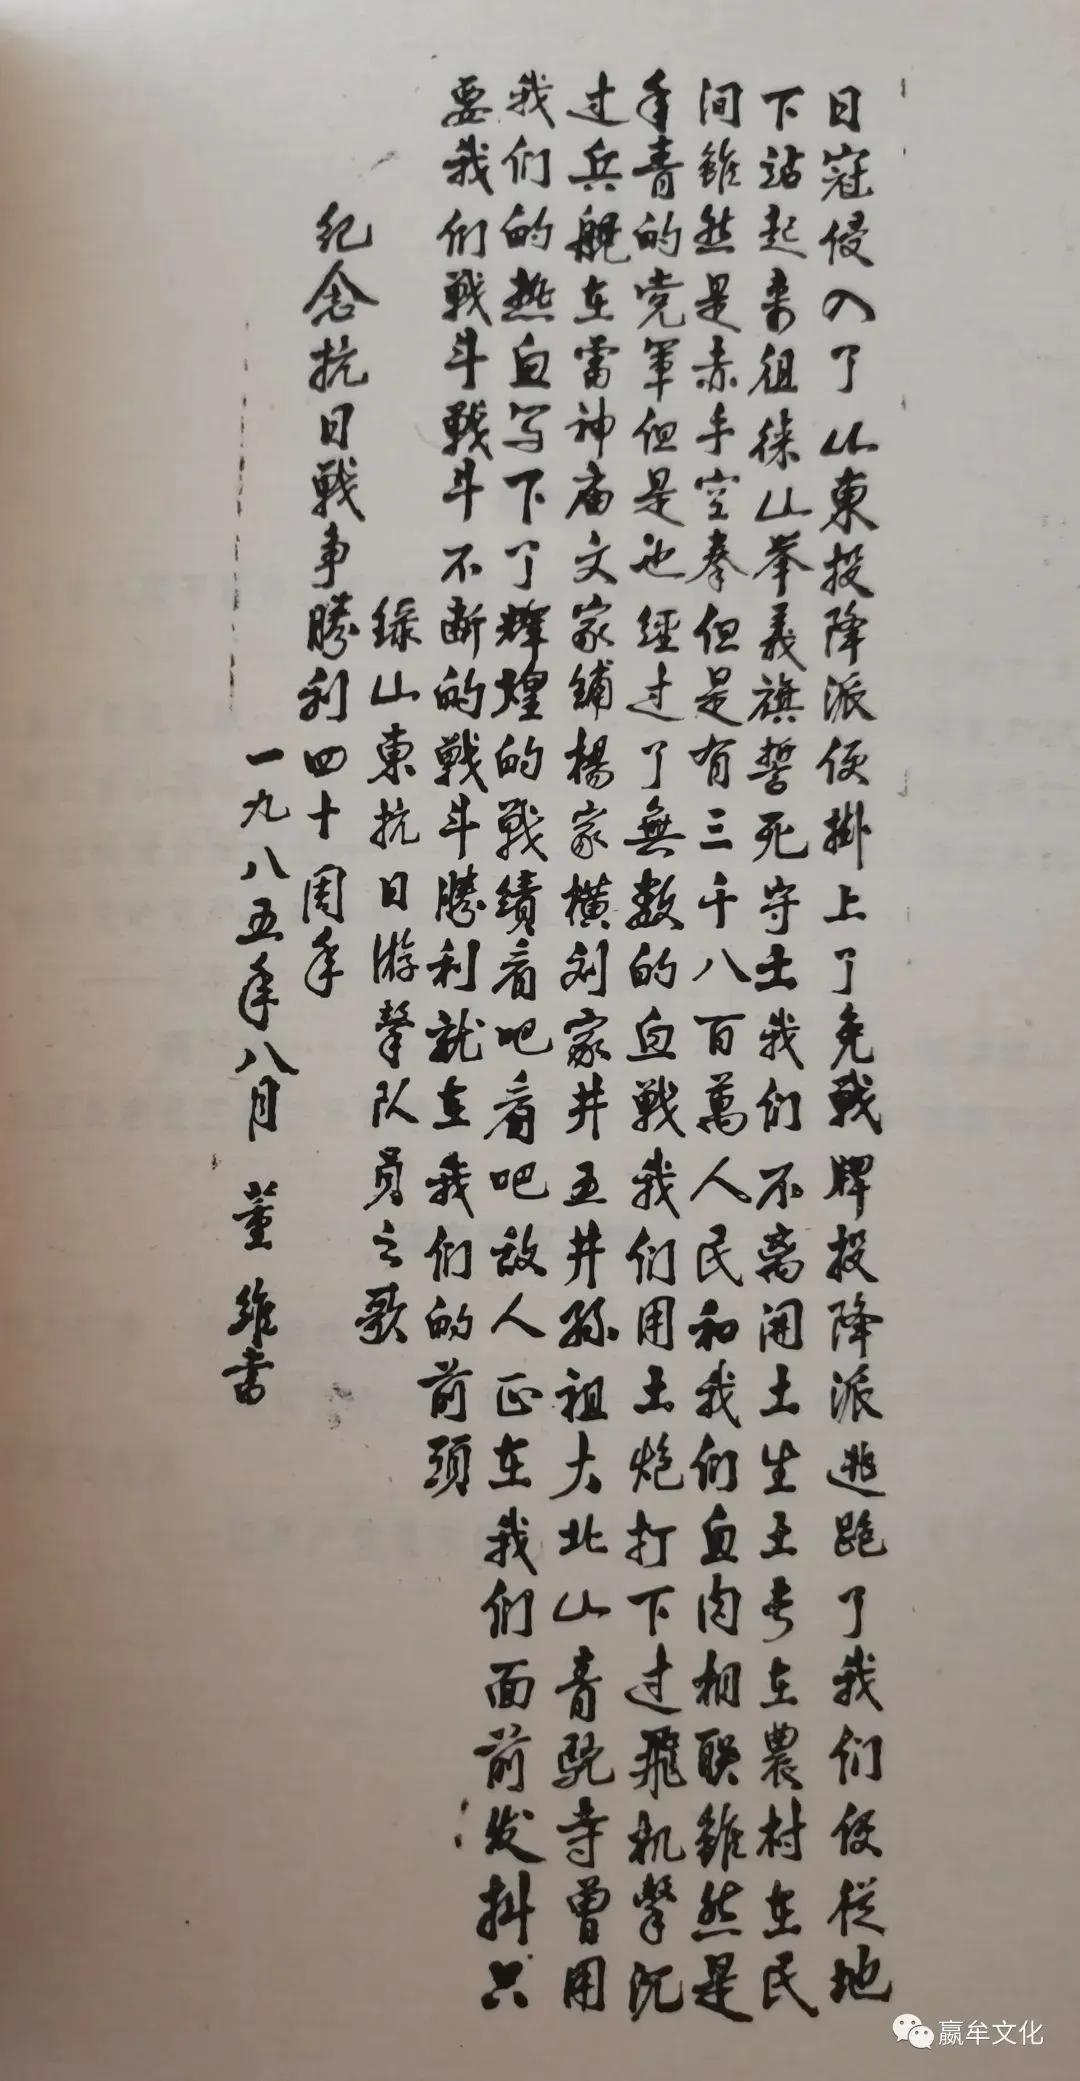 日寇侵入了山東投降派便掛上了免戰牌投降派逃跑了我们便從地
下站起来徂徕山举義旗誓死守土我们不离開土生土长在農村在民
间雖然是赤手空拳但是有三千八百萬人民和我们血肉相联雖然是
年青的党軍但是也經过了無数的血戰我们用土炮打下过飛机擊沉
过兵舰在雷神庙文家铺楊家横刘家井五井孫祖大北山青驼寺曾用
我们的熱血写下了辉煌的戰績看吧看吧敌人正在我们面前发抖只
要我们戰斗戰斗不断的戰斗勝利就在我们的前頭
錄山東抗日游擊队員之歌
纪念抗日戰争勝利四十周年
一九八五年八月 董維書
嬴牟文化